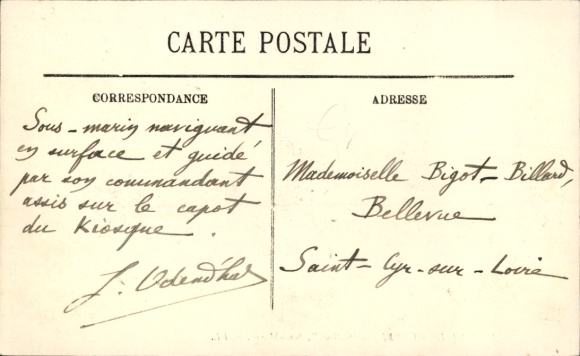 CARTE POSTALE
CORRESPONDANCE
Sous-marin naviguant
en surface et guidé
par son commandant
assis sur le capot
du Kiosque.
J. Odend'hal
ADRESSE
Mademoiselle Bigot-Billard,
Bellevue
Saint-Cyr-sur-Loire